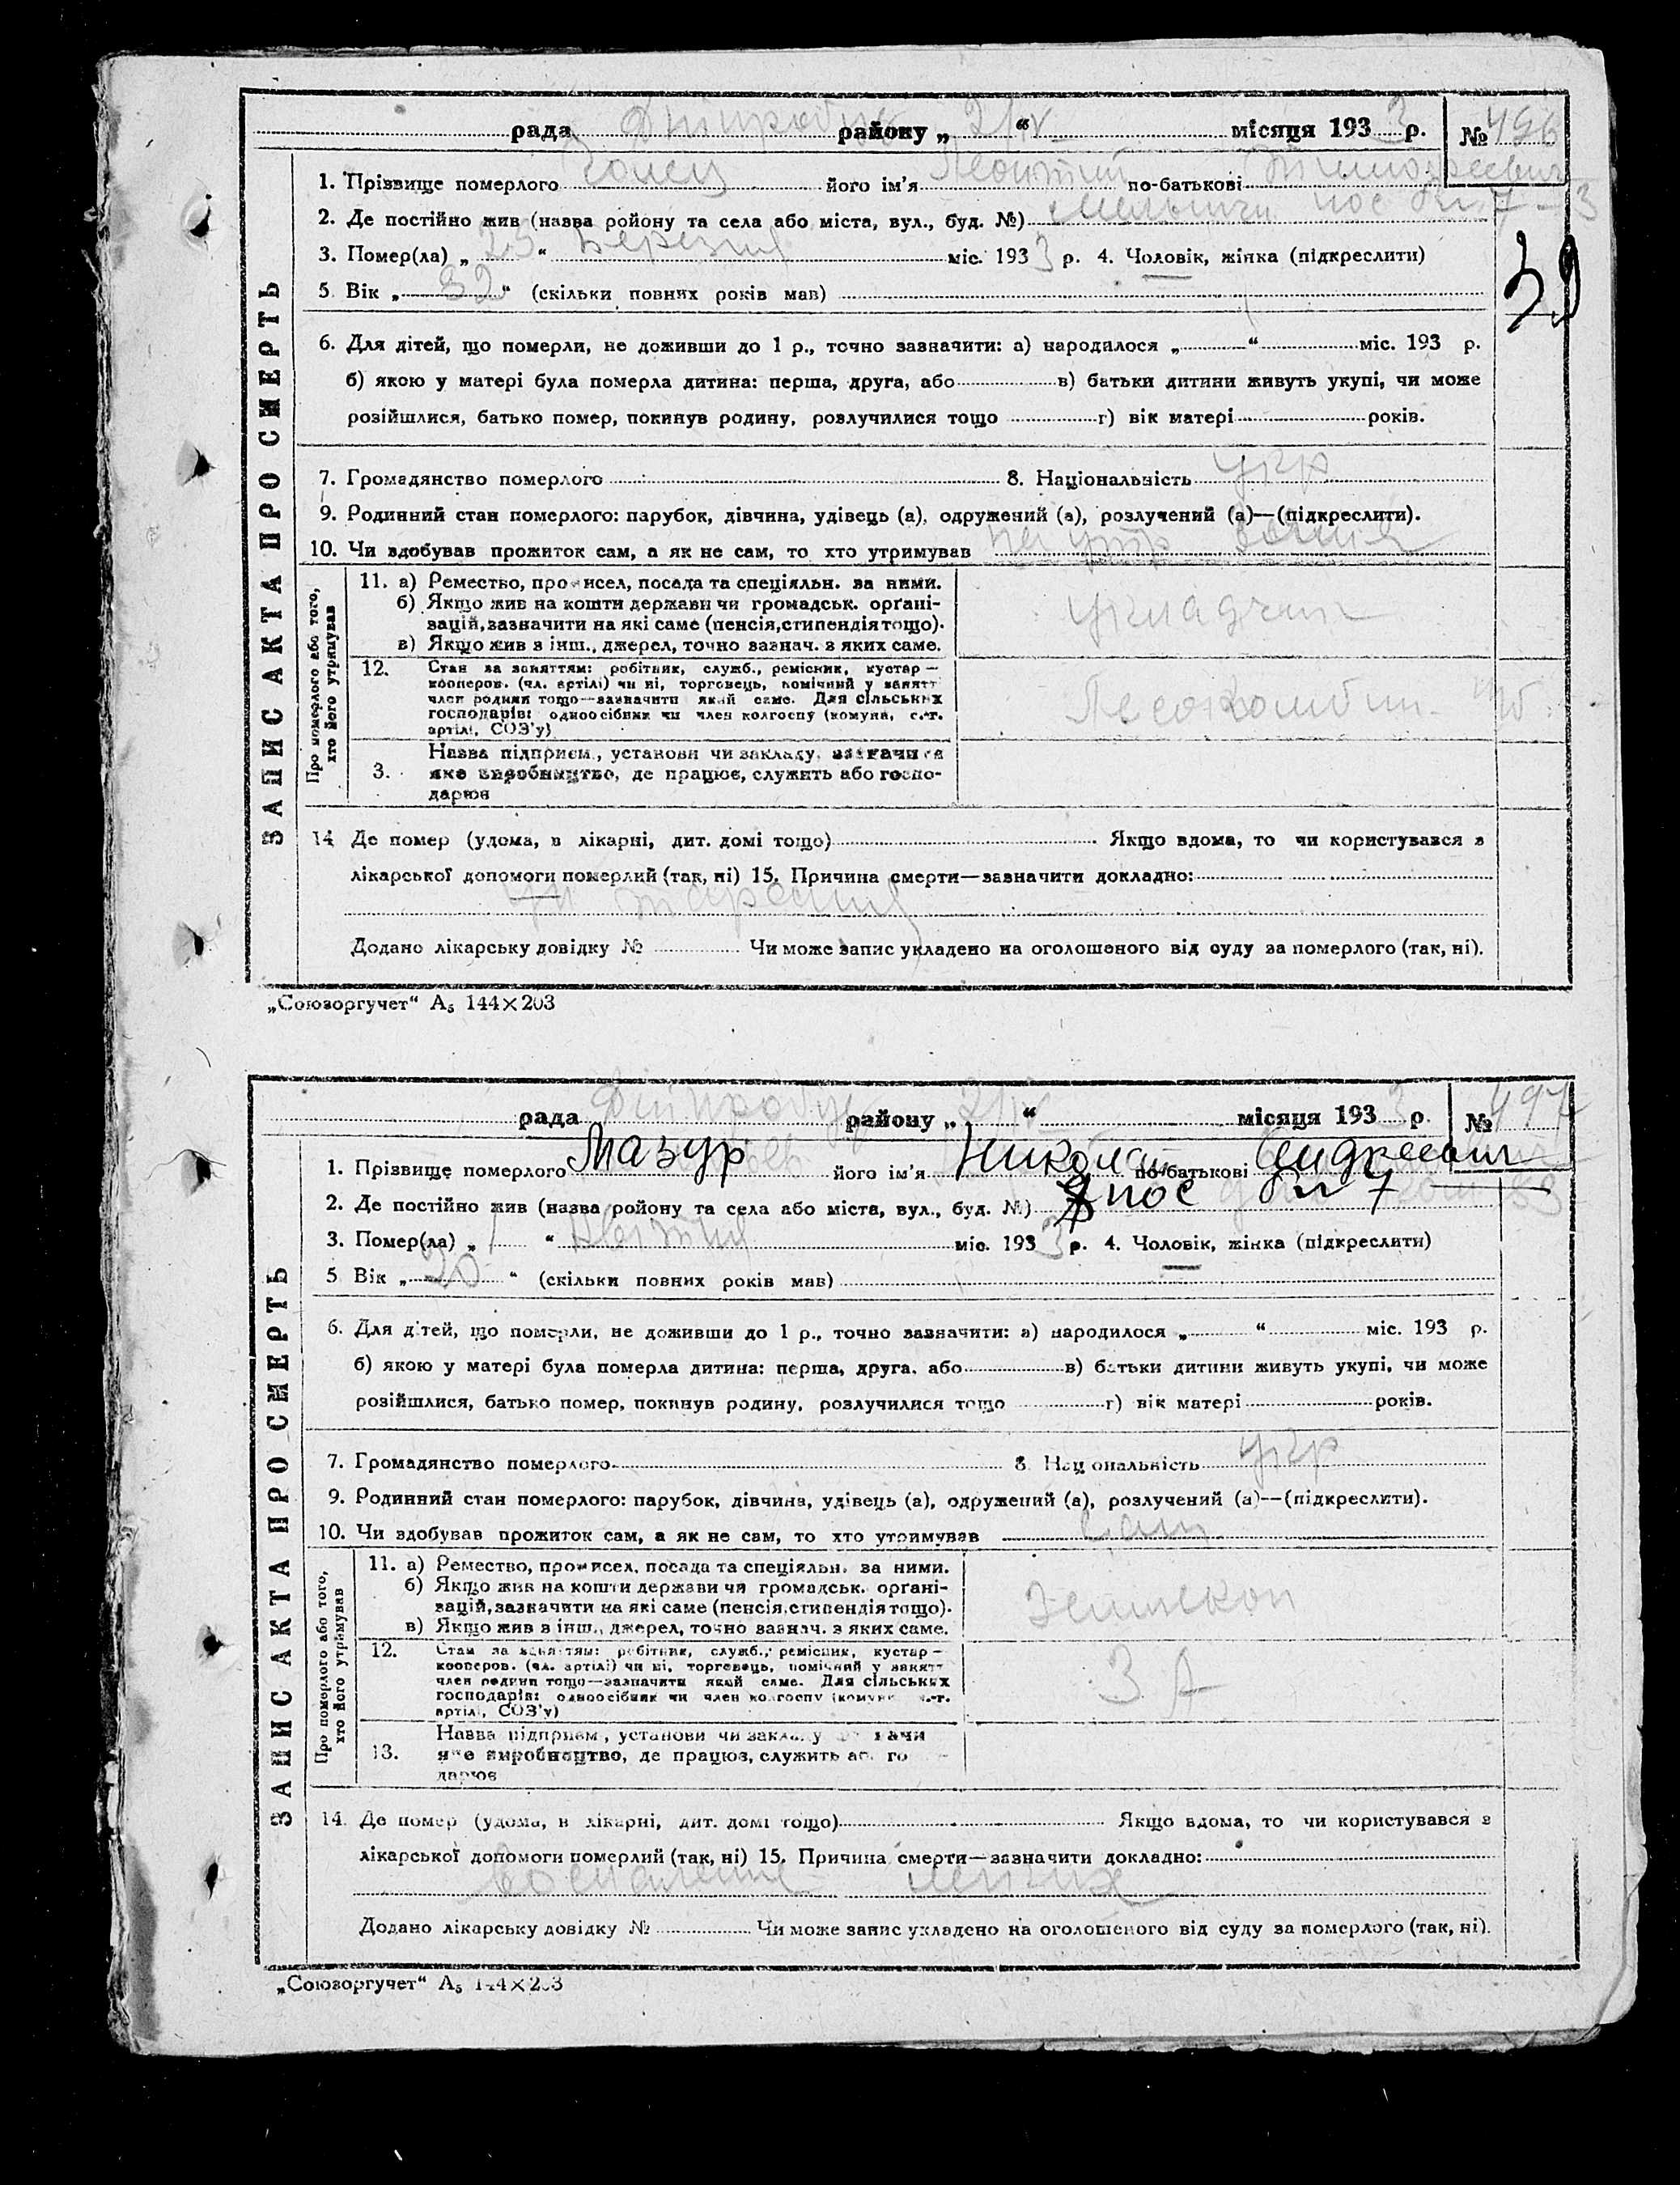 рада Дніпробуд району „ 21/IV “ місяця 1933 р. № 496
ЗАПИС АКТА ПРО СМЕРТЬ
1. Прізвище померлого його ім'я Леонтий по-батькові Тимофеевич
2. Де постійно жив (назва ройону та села або міста, вул., буд. №) пос 7 - 3
3. Помер(ла) „ 25 “ Березня міс. 1933 р. 4. Чоловік, жінка (підкреслити)
39
5 Вік „ “ (скільки повних років мав)
6. Для дітей, що померли, не доживши до 1 р., точно зазначити: а) народилося „ “ міс. 193 р.
б) якою у матері була померла дитина: перша, друга, або в) батьки дитини живуть укупі, чи може
розійшлися, батько помер, покинув родину, розлучилися тощо г) вік матері років.
7. Громадянство померлого 8. Національність укр
9. Родинний стан померлого: парубок, дівчина, удівець (а), одружений (а), розлучений (а)—(підкреслити).
10. Чи здобував прожиток сам, а як не сам, то хто утримував на утр
Про померлого або того, хто його утримував
11. а) Ремество, промисел, посада та спеціяльн. за ними.
б) Якщо жив на кошти держави чи громадськ. органі-
зацій, зазначити на які саме (пенсія, стипендія тощо).
в) Якщо жив з інш., джерел, точно зазнач. з яких саме.
укладчик
12. Стан за заняттям: робітник, служб., ремісник, кустар—
кооперов. (чл. артілі) чи ні, торговець, помічний у занятт
член родини тощо—зазначити який саме. Для сільських
господарів: одноосібник чи член колгоспу (комуна, с.-г.
артілі, СОЗ'у)
Лесокомбин.
Назва підприєм., установи чи закладу, зазначити
3. яке виробництво, де працює, служить або госпо-
дарює
14 Де помер (удома, в лікарні, дит. домі тощо) Якщо вдома, то чи користувався з
лікарської допомоги померлий (так, ні) 15. Причина смерти—зазначити докладно:
Додано лікарську довідку № Чи може запис укладено на оголошеного від суду за померлого (так, ні).
„Союзоргучет“ А₅ 144×203
рада Дніпробуд району „ 21/IV “ місяця 1933 р. № 497
ЗАПИС АКТА ПРО СМЕРТЬ
1. Прізвище померлого Мазур його ім'я Николай по-батькові Андреевич
2. Де постійно жив (назва ройону та села або міста, вул., буд. №) пос 7
3. Помер(ла) „ 1 “ Квітня міс. 1933 р. 4. Чоловік, жінка (підкреслити)
5 Вік „ 20 “ (скільки повних років мав)
6. Для дітей, що померли, не доживши до 1 р., точно зазначити: а) народилося „ “ міс. 193 р.
б) якою у матері була померла дитина: перша, друга, або в) батьки дитини живуть укупі, чи може
розійшлися, батько помер, покинув родину, розлучилися тощо г) вік матері років.
7. Громадянство померлого 8. Національність укр
9. Родинний стан померлого: парубок, дівчина, удівець (а), одружений (а), розлучений (а)—(підкреслити).
10. Чи здобував прожиток сам, а як не сам, то хто утримував сам
Про померлого або того, хто його утримував
11. а) Ремество, промисел, посада та спеціяльн. за ними.
б) Якщо жив на кошти держави чи громадськ. органі-
зацій, зазначити на які саме (пенсія, стипендія тощо).
в) Якщо жив з інш., джерел, точно зазнач. з яких саме.
Землекоп
12. Стан за заняттям: робітник, служб., ремісник, кустар—
кооперов. (чл. артілі) чи ні, торговець, помічний у занятт
член родини тощо—зазначити який саме. Для сільських
господарів: одноосібник чи член колгоспу (комуни с.-г.
артілі, СОЗ'у)
З А
Назва підприєм., установи чи закладу
13. яке виробництво, де працює, служить
дарює
14. Де помер (удома, в лікарні, дит. домі тощо) Якщо вдома, то чи користувався з
лікарської допомоги померлий (так, ні) 15. Причина смерти—зазначити докладно:
Воспаление легких
Додано лікарську довідку № Чи може запис укладено на оголошеного від суду за померлого (так, ні).
„Союзоргучет“ А₅ 144×203